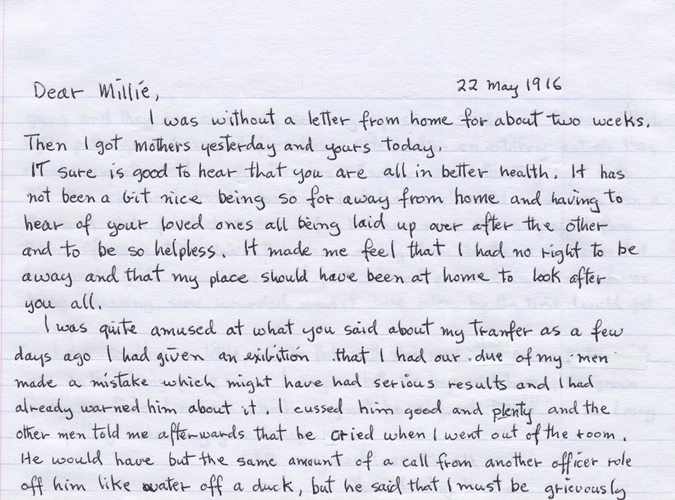 Dear Millie, 22 May 1916
I was without a letter from home for about two weeks.
Then I got mothers yesterday and yours today.
IT sure is good to hear that you are all in better health. It has
not been a bit nice being so far away from home and having to
hear of your loved ones all being laid up over after the other
and to be so helpless. It made me feel that I had no right to be
away and that my place should have been at home to look after
you all.
I was quite amused at what you said about my Tranfer as a few
days ago I had given an exibition that I had our due of my men
made a mistake which might have had serious results and I had
already warned him about it. I cussed him good and plenty and the
other men told me afterwards that he cried when I went out of the room.
He would have but the same amount of a call from another officer role
off him like water off a duck, but he said that I must be grievously